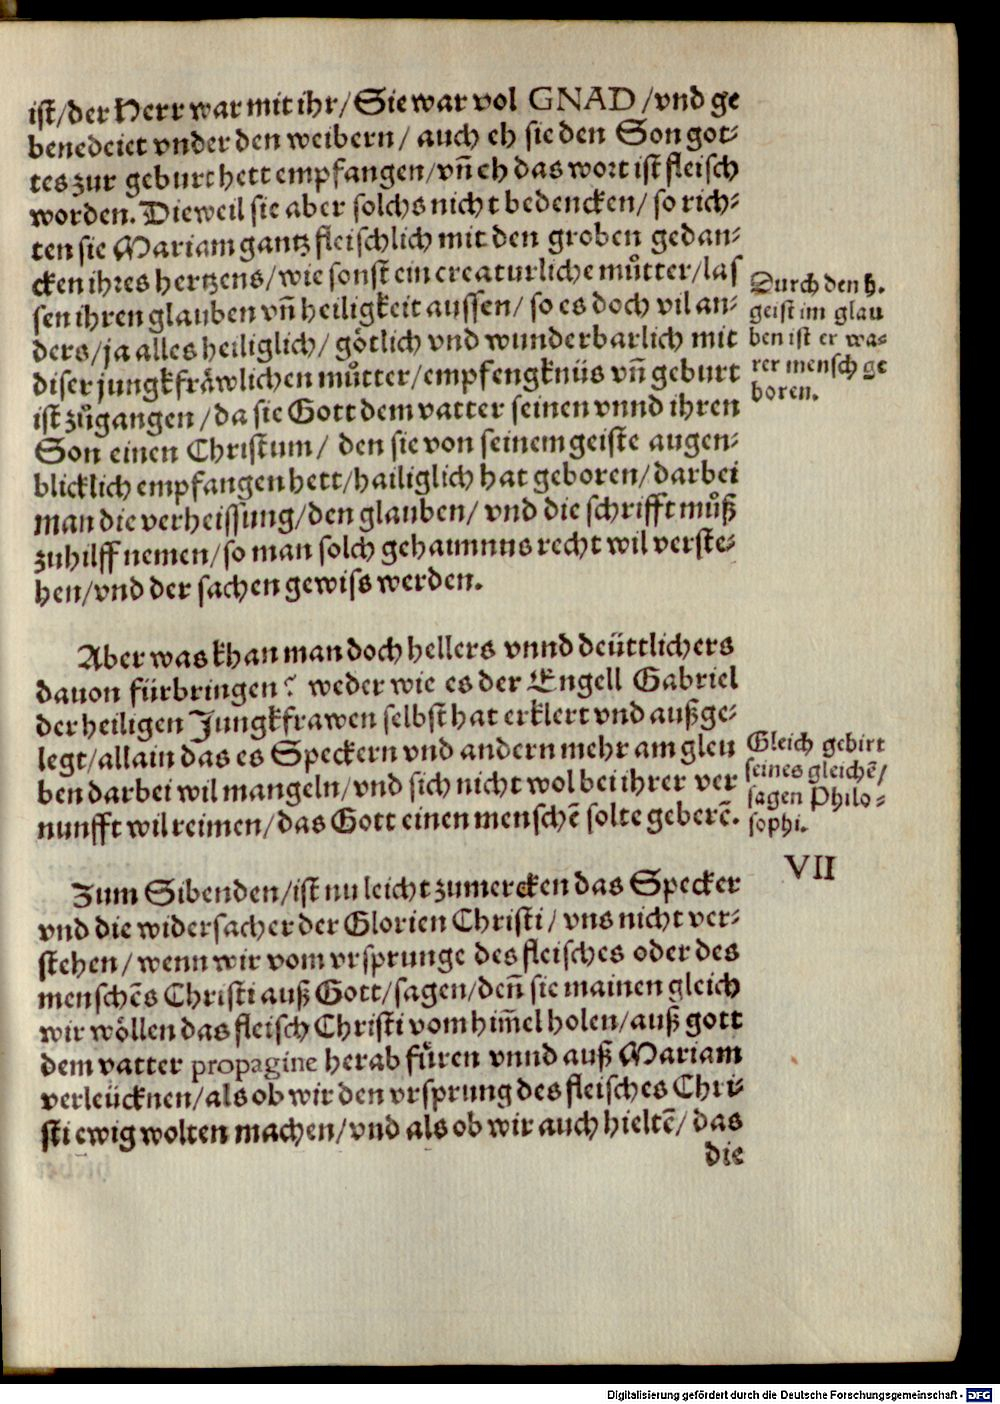 ist/der Herr war mit ihr/Sie war vol GNAD/vnd ge
benedeiet vnder den weibern/auch eh sie den Son got-
tes zur geburt hett empfangen/vn̄ eh das wort ist fleisch
worden. Dieweil sie aber solchs nicht bedencken/so rich-
ten sie Mariam gantz fleischlich mit den groben gedan-
cken ihres hertzens/wie sonst ein creaturliche můtter/las
sen ihren glauben vn̄ heiligkeit aussen/so es doch vil an-
ders/ja alles heiliglich/götlich vnd wunderbarlich mit
diser jungkfräwlichen můtter/empfengknüs vn̄ geburt
ist zůgangen/da sie Gott dem vatter seinen vnnd ihren
Son einen Christum/den sie von seinem geiste augen-
blicklich empfangen hett/hailiglich hat geboren/darbei
man die verheissung/den glauben/vnd die schrifft můß
zuhilff nemen/so man solch gehaimnus recht wil verste-
hen/vnd der sachen gewiss werden.
Durch den h.
geist im glau
ben ist er wa-
rer mensch ge
boren.
Aber was khan man doch hellers vnnd deüttlichers
dauon fürbringen? weder wie es der Engell Gabriel
der heiligen Jungkfrawen selbst hat erklert vnd außge-
legt/allain das es Speckern vnd andern mehr am gleu
ben darbei wil mangeln/vnd sich nicht wol bei ihrer ver
nunfft wil reimen/das Gott einen menschē solte geberē.
Gleich gebirt
seines gleichē/
sagen Philo-
sophi.
VII
Zum Sibenden/ist nu leicht zumercken das Specker
vnd die widersacher der Glorien Christi/vns nicht ver-
stehen/wenn wir vom vrsprunge des fleisches oder des
menschēs Christi auß Gott/sagen/den̄ sie mainen gleich
wir wöllen das fleisch Christi vom him̄el holen/auß gott
dem vatter propagine herab fůren vnnd auß Mariam
verleücknen/als ob wir den vrsprung des fleisches Chri-
sti ewig wolten machen/vnd als ob wir auch hieltē/das
die
Digitalisierung gefördert durch die Deutsche Forschungsgemeinschaft - DFG